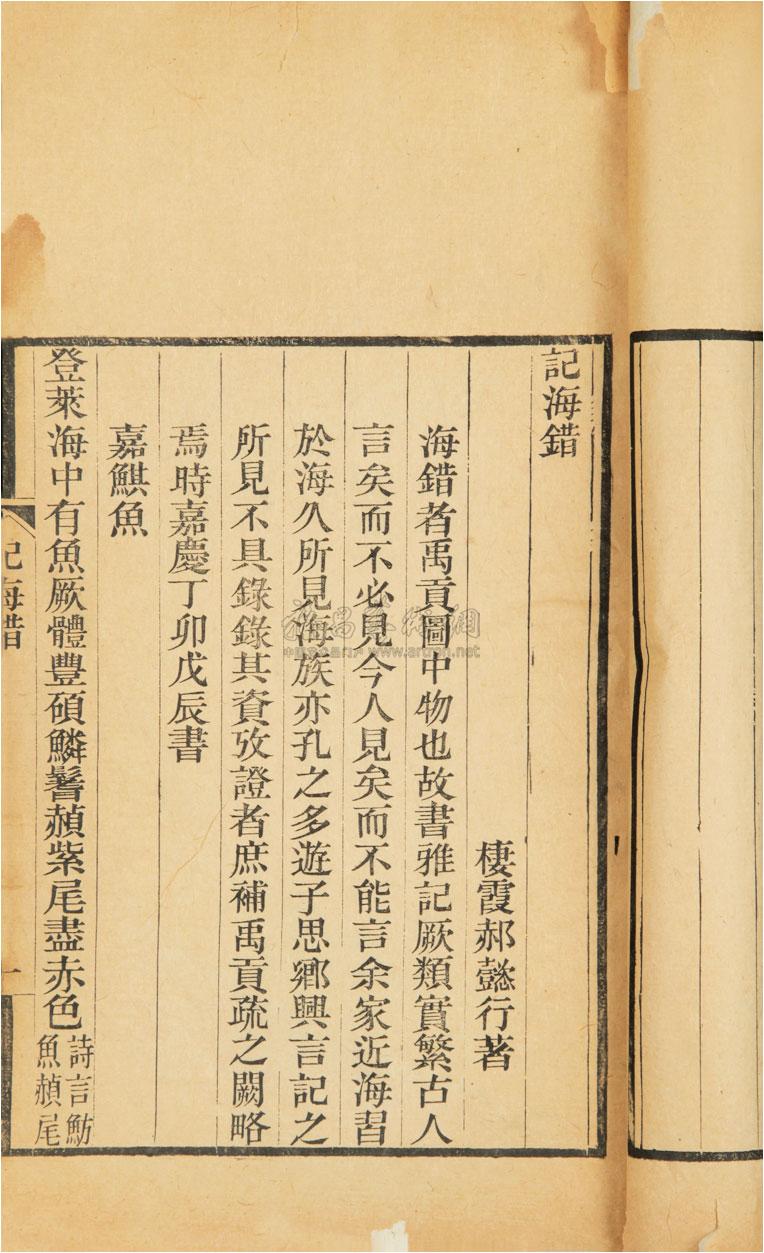 記海錯
棲霞郝懿行著
海錯者禹貢圖中物也故書雅記厥類實繁古人
言矣而不必見今人見矣而不能言余家近海習
於海久所見海族亦孔之多遊子思鄉興言記之
所見不具錄錄其資攷證者庶補禹貢疏之闕略
焉時嘉慶丁卯戊辰書
嘉鯕魚
登萊海中有魚厥體豐碩鱗鬐赬紫尾盡赤色
詩言魴
魚赬尾
記海錯
一
www.artron.net